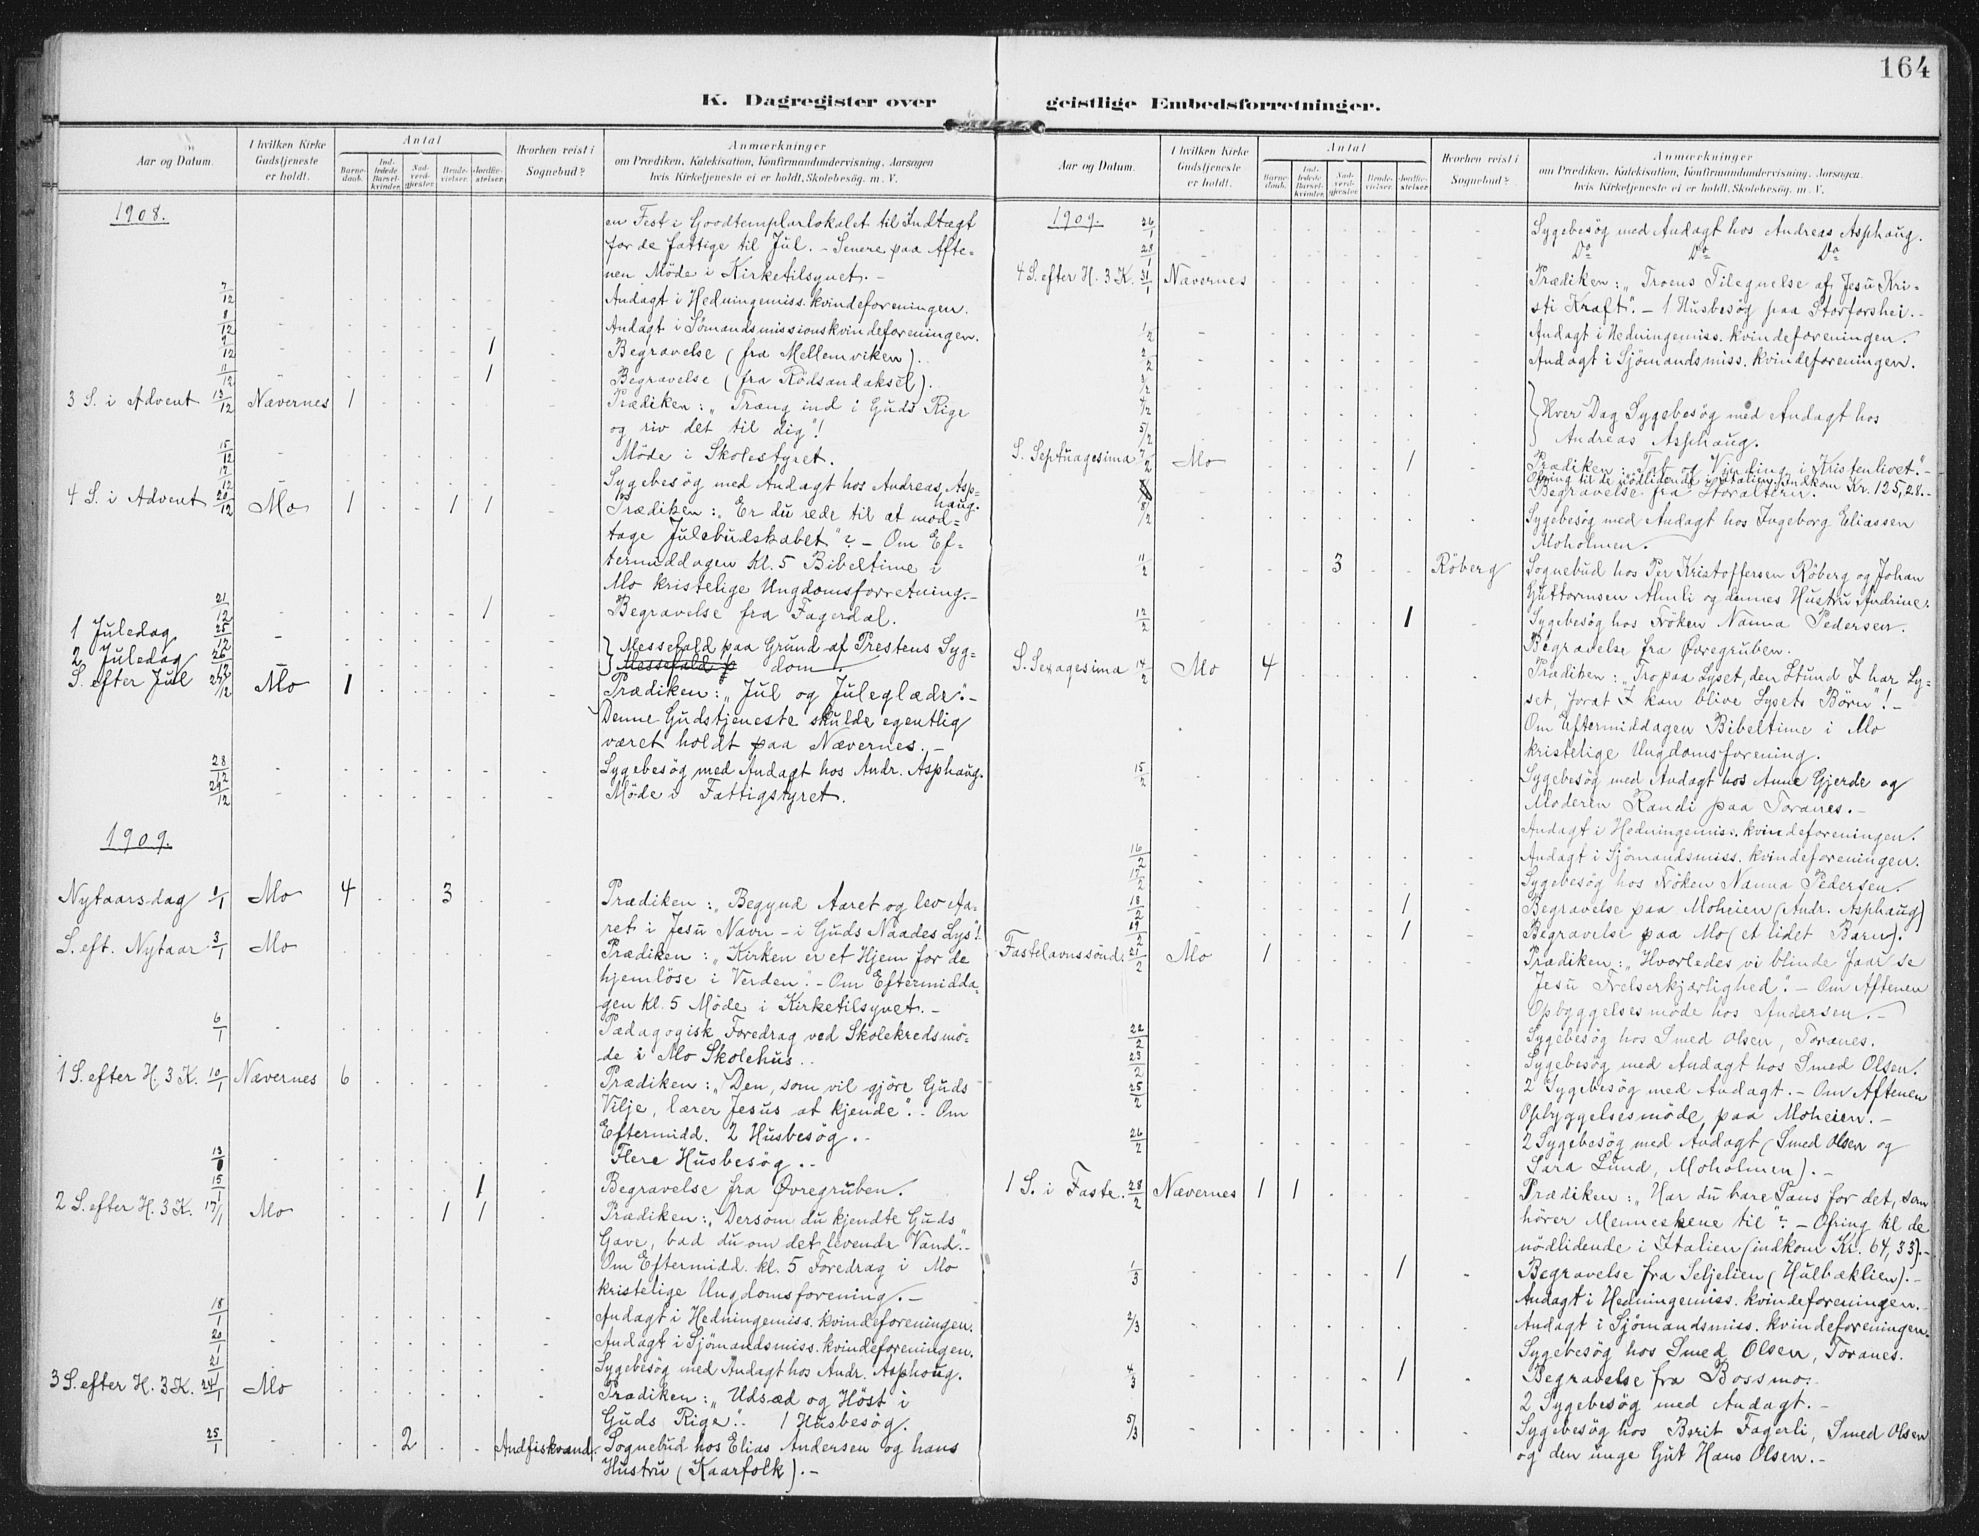 164
K. Dagregister over geistlige Embedsforretninger.
Aar og Datum.
I hvilken Kirke Gudstjeneste er holdt.
Antal
Barnedaab.
Indledede Barselkvinder.
Nadverdgjester.
Brudevielser.
Jordfæstelser.
Hvorhen reist i Sognebud?
Anmærkninger
om Prædiken, Katekisation, Konfirmandundervisning. Aarsagen
hvis Kirketjeneste ei er holdt, Skolebesøg. m. V.
1908.
en Fest i Goodtemplarlokalet til Indtægt
for de fattige til Jul. - Senere paa Afte-
nen Möde i Kirketilsynet. -
7/12 Andagt i Hedningemiss.kvindeforeningen.
8/12 Andagt i Sømandsmissionskvindeforeningen.
9/12 1 Begravelse (fra Mellemviken).
11/12 1 Begravelse (fra Rödsandaksel).
3 S. i Advent 13/12 Nævernes 1 Prædiken: „Træng ind i Guds Rige
og riv det til dig"!
15/12 Möde i Skolestyret.
17/12 Sygebesög med Andagt hos Andreas Asp-
haug.
4 S. i Advent 20/12 Mo 1 1 1 Prædiken: „Er du rede til at mod-
tage Julebudskabet"? - Om Ef-
termiddagen kl. 5 Bibeltime i
Mo kristelige Ungdomsforretning. -
21/12 1 Begravelse fra Fagerdal.
1 Juledag 25/12 Messefald paa Grund af Prestens Syg-
2 Juledag 26/12 Messefald p dom.
S. efter Jul 27/12 Mo 1 Prædiken: „Jul og Juleglæde". -
Denne Gudstjeneste skulde egentlig
været holdt paa Nævernes. -
28/12 Sygebesög med Andagt hos Andr. Asphaug.
29/12 Möde i Fattigstyret.
1909.
Nytaarsdag 1/1 Mo 4 3 Prædiken: „Begynd Aaret og lev Aa-
ret i Jesu Navn - i Guds Naades Lys"!
S. eft. Nytaar 3/1 Mo Prædiken: „Kirken er et Hjem for de
hjemlöse i Verden". - Om Eftermidda-
gen kl. 5 Möde i Kirketilsynet. -
6/1 Pædagogisk Foredrag ved Skolekredsmö-
de i Mo Skolehus. -
1 S. efter H. 3 K. 10/1 Nævernes 6 Prædiken: „Den, som vil gjöre Guds
Vilje, lærer Jesus at kjende". - Om
Eftermidd. 2 Husbesög. -
13/1 Flere Husbesög. -
15/1 1 Begravelse fra Øvregruben.
2 S. efter H. 3 K. 17/1 Mo 1 1 Prædiken: „Dersom du kjendte Guds
Gave, bad du om det levende Vand". -
Om Eftermidd. kl. 5 Foredrag i Mo
kristelige Ungdomsforening. -
18/1 Andagt i Hedningemiss.kvindeforeningen.
20/1 Andagt i Sjömandsmiss.kvindeforeningen.
21/1 Sygebesög med Andagt hos Andr. Asphaug.
3 S. efter H. 3 K. 24/1 Mo Prædiken: „Udsæd og Höst i
Guds Rige". 1 Husbesög.
25/1 2 Andfiskvand. Sognebud hos Elias Andersen og hans
Hustru (Kaarfolk). -
Aar og Datum.
I hvilken Kirke Gudstjeneste er holdt.
Antal
Barnedaab.
Indledede Barselkvinder.
Nadverdgjester.
Brudevielser.
Jordfæstelser.
Hvorhen reist i Sognebud?
Anmærkninger
om Prædiken, Katekisation, Konfirmandundervisning. Aarsagen
hvis Kirketjeneste ei er holdt, Skolebesøg. m. V.
1909. 26/1 Sygebesög med Andagt hos Andreas Asphaug.
28/1 Do Do Do
4 S. efter H. 3 K. 31/1 Nævernes Prædiken: „Troens Tilegnelse af Jesu Kri-
sti Kraft". - 1 Husbesög paa Storforshei. -
1/2 Andagt i Hedningemiss.kvindeforeningen.
2/2 Andagt i Sjömandsmiss.kvindeforeningen.
3/2
4/2 Hver Dag Sygebesög med Andagt hos
5/2 Andreas Asphaug.
S. Septuagesima 7/2 Mo 1 Prædiken: „Tab og Vinding i Kristenlivet". -
Ofring til de nödlidende i Italien, indkom Kr. 125,28. -
Begravelse fra Storalteren.
8/2 Sygebesög med Andagt hos Ingeborg Eliassen
Moholmen.
11/2 3 Röberg Sognebud hos Per Kristoffersen Röberg og Johan
Guttormsen Almli og dennes Hustru Andrine.
12/2 1 Sygebesög hos Fröken Nanna Pedersen.
Begravelse fra Øvregruben.
S. Sexagesima 14/2 Mo 4 Prædiken: „Tro paa Lyset, den Stund I har Ly-
set, forat I kan blive Lysets Börn"! -
Om Eftermiddagen Bibeltime i Mo
kristelige Ungdomsforening.
15/2 Sygebesög med Andagt hos Anne Gjerde og
Moderen Randi paa Toranes. -
Andagt i Hedningemiss.kvindeforeningen.
16/2 Andagt i Sjömandsmiss.kvindeforeningen.
17/2 Sygebesög hos Fröken Nanna Pedersen.
18/2 1 Begravelse paa Moheien (Andr. Asphaug)
19/2 1 Begravelse paa Mo (et lidet Barn).
Fastelavnssönd. 21/2 Mo 1 Prædiken: „Hvorledes vi blinde faar se
Jesu Frelserkjærlighed". - Om Aftenen
Opbyggelsesmöde hos Andersen. -
22/2 Sygebesög hos Smed Olsen, Toranes.
23/2 Sygebesög med Andagt hos Smed Olsen.
25/2 2 Sygebesög med Andagt. - Om Aftenen
Opbyggelsesmöde paa Moheien. -
26/2 2 Sygebesög med Andagt (Smed Olsen og
Sara Lund, Moholmen). -
1 S. i Faste. 28/2 Nævernes 1 1 Prædiken: „Har du bare Sans for det, som
hörer Menneskene til"? - Ofring til de
nödlidende i Italien (indkom Kr. 64,33). -
1/3 1 Begravelse fra Seljelien (Hulbæklien). -
Andagt i Hedningemiss.kvindeforeningen. -
2/3 Andagt i Sjömandsmiss.kvindeforeningen.
Sygebesög hos Smed Olsen, Toranes.
4/3 1 Begravelse fra Bossmo. -
2 Sygebesög med Andagt. -
5/3 Sygebesög hos Berit Fagerli, Smed Olsen
og den unge Gut Hans Olsen. -